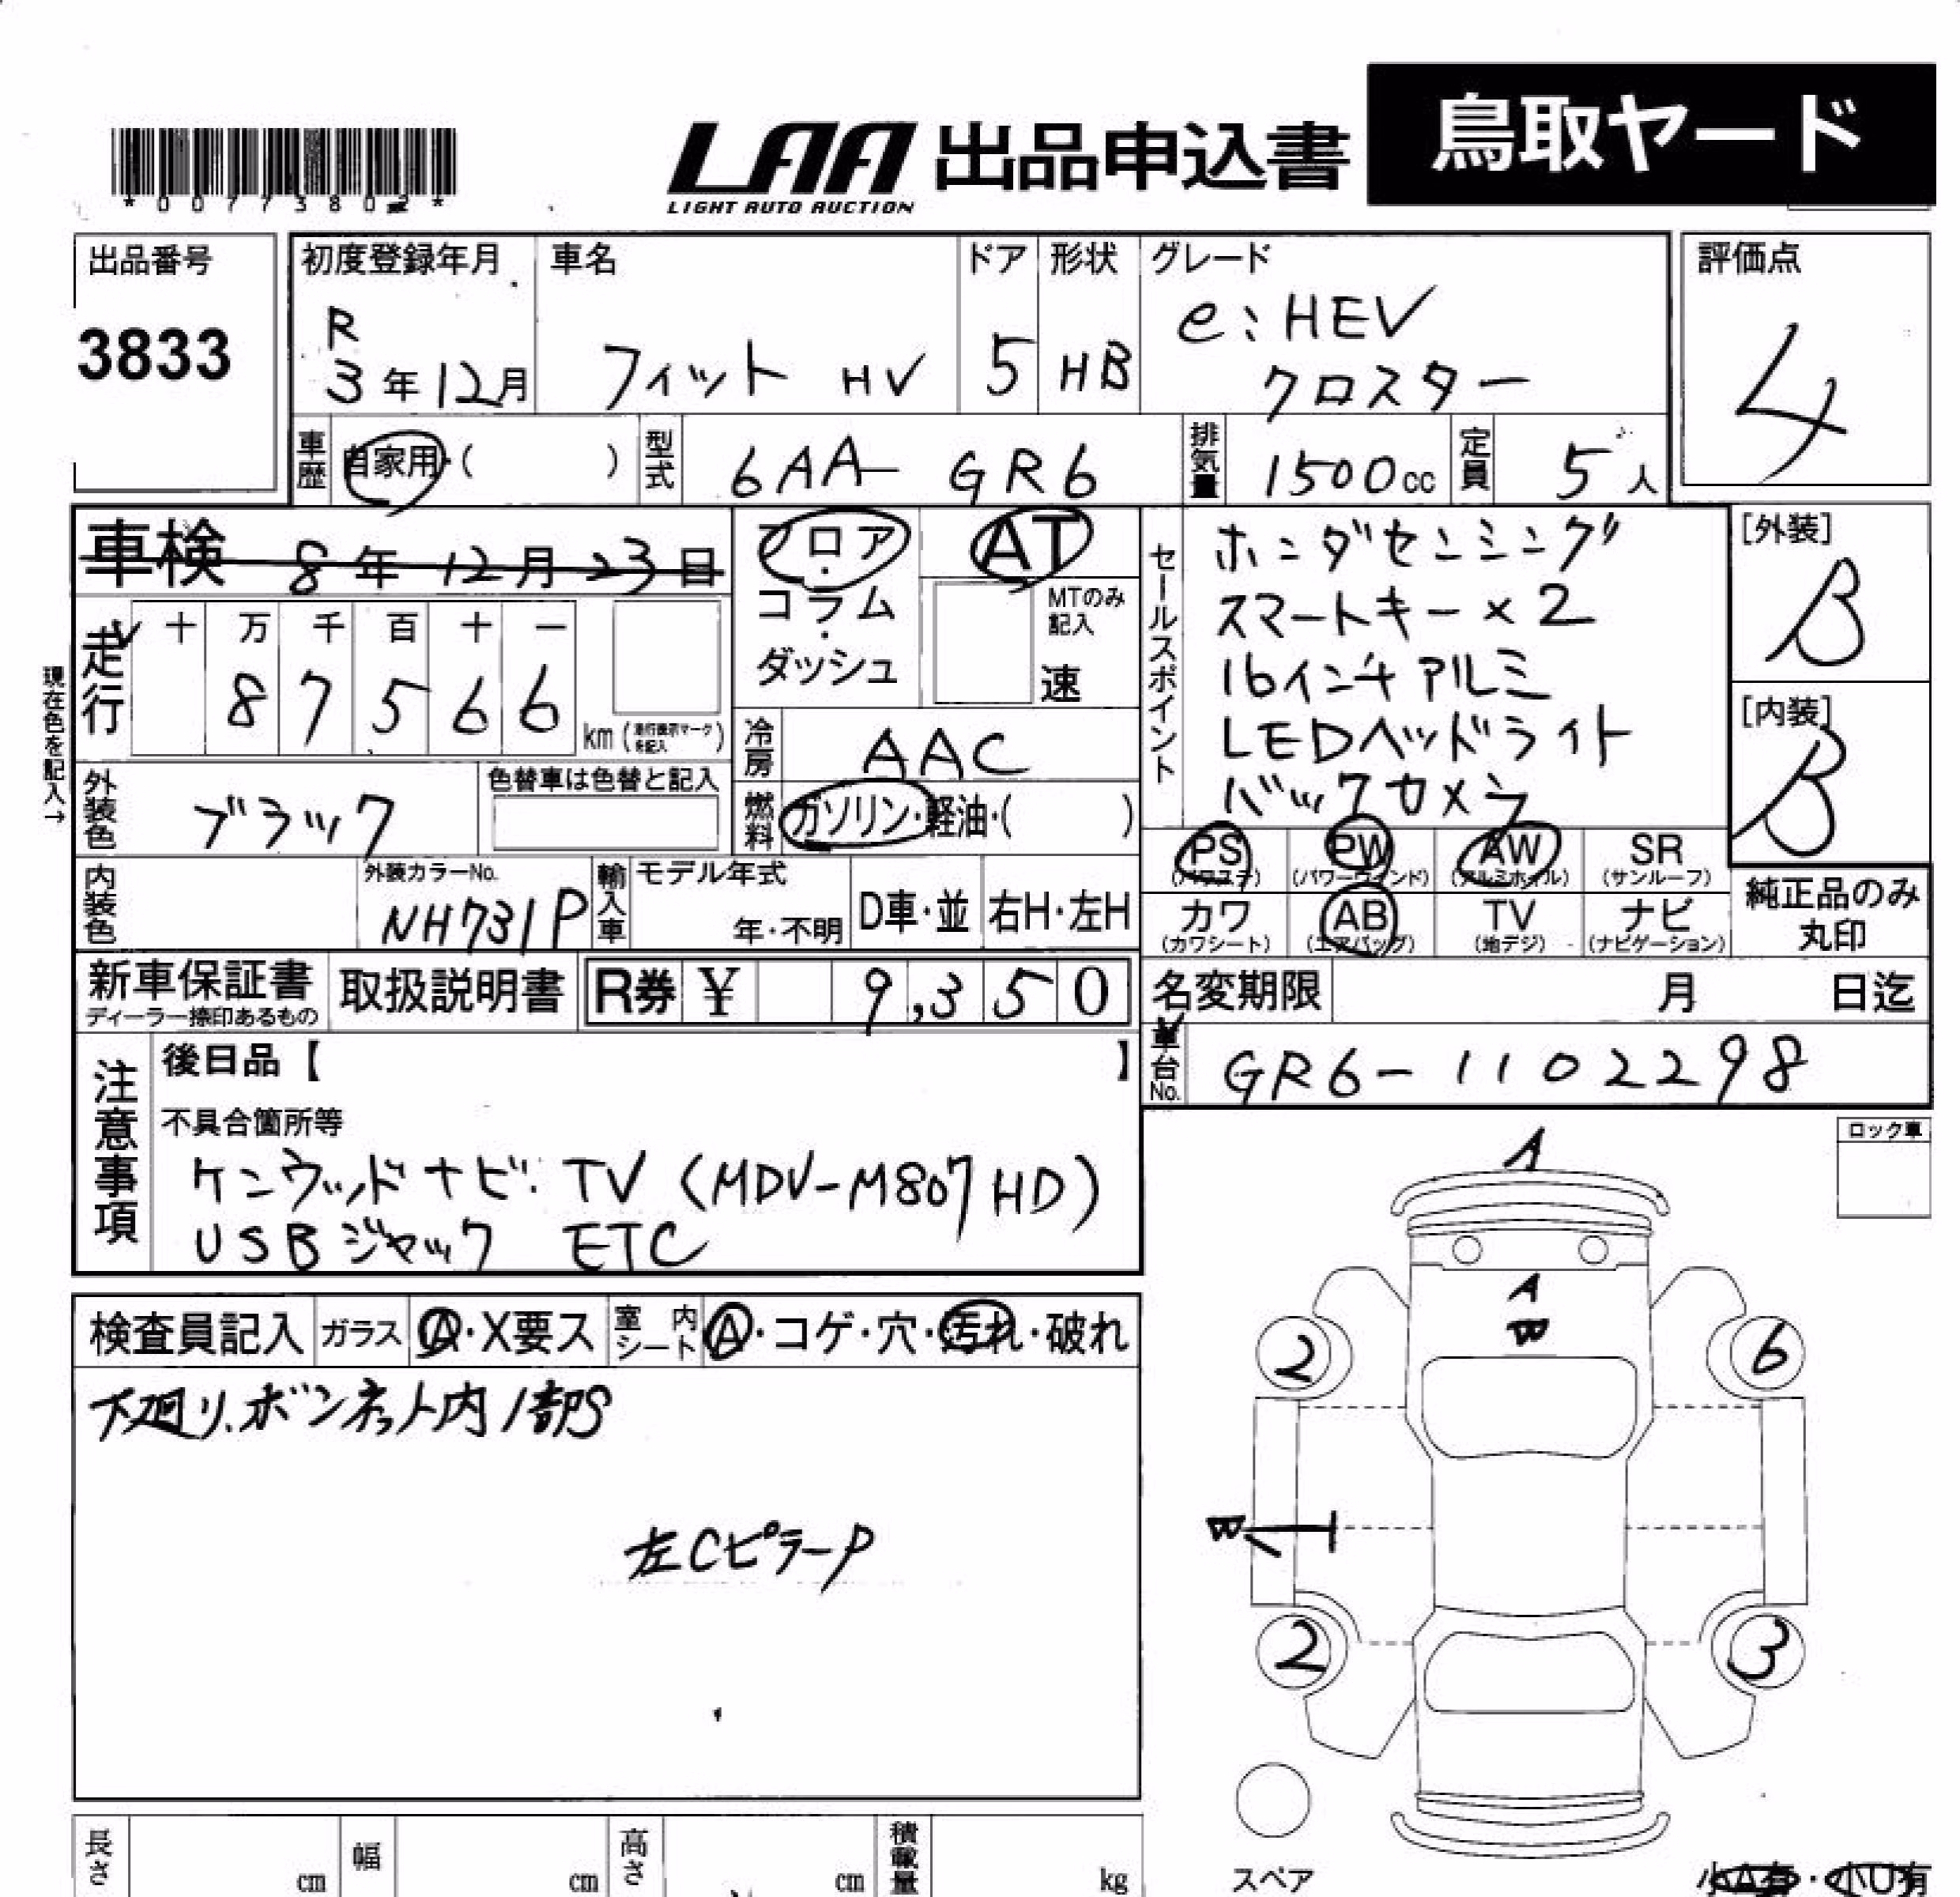 鳥取ヤード
LAA 出品申込書
LIGHT AUTO AUCTION
*00773802*
出品番号
3833
初度登録年月
R
3年12月
車名
フィット HV
ドア
5
形状
HB
グレード
e:HEV
クロスター
評価点
4
車歴 自家用・( )
型式 6AA- GR6
排気量 1500cc
定員 5人
車検 8年12月23日
フロア・コラム・ダッシュ
AT
MTのみ記入
速
走行
十 万 千 百 十 一
8 7 5 6 6
km (走行表示マークを記入)
現在色を記入→
冷房 AAC
外装色 ブラック
色替車は色替と記入
燃料 ガソリン・軽油・( )
セールスポイント
ホンダセンシング
スマートキー×2
16インチアルミ
LEDヘッドライト
バックカメラ
[外装]
B
[内装]
B
内装色
外装カラーNo.
NH731P
輸入車
モデル年式
年・不明
D車・並
右H・左H
PS (パワステ)
PW (パワーウィンド)
AW (アルミホイル)
SR (サンルーフ)
カワ (カワシート)
AB (エアバッグ)
TV (地デジ)
ナビ (ナビゲーション)
純正品のみ
丸印
新車保証書
ディーラー捺印あるもの
取扱説明書
R券 ¥ 9,350
名変期限 月 日迄
車台No. GR6-1102298
注意事項
後日品【 】
不具合箇所等
ケンウッドナビ・TV (MDV-M807HD)
USBジャック ETC
ロック車
A
A
B
2
6
B
2
3
検査員記入
ガラス A・X要ス
室内シート A・コゲ・穴・汚れ・破れ
下廻り、ボンネット内1部S
左CピラーP
長さ cm
幅 cm
高さ cm
積載量 kg
スペア
小A有・小U有